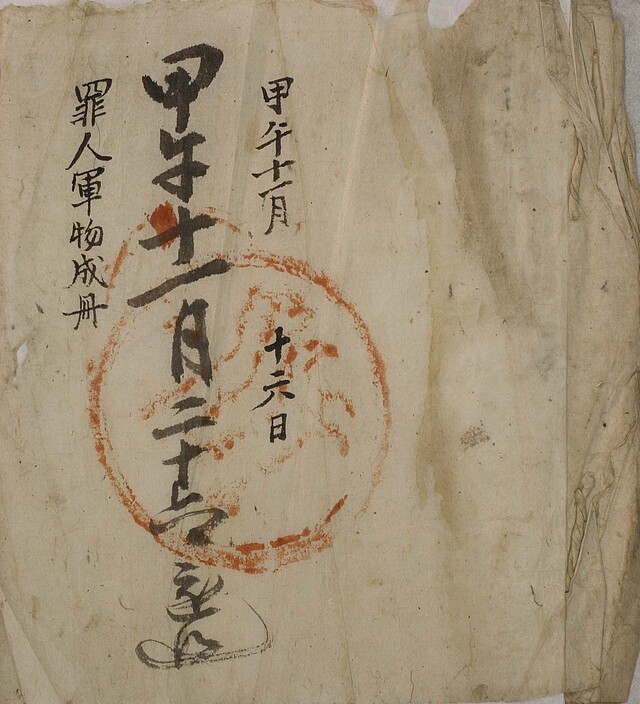 甲午十一月 十六日
甲午十一月二十
罪人軍物成冊